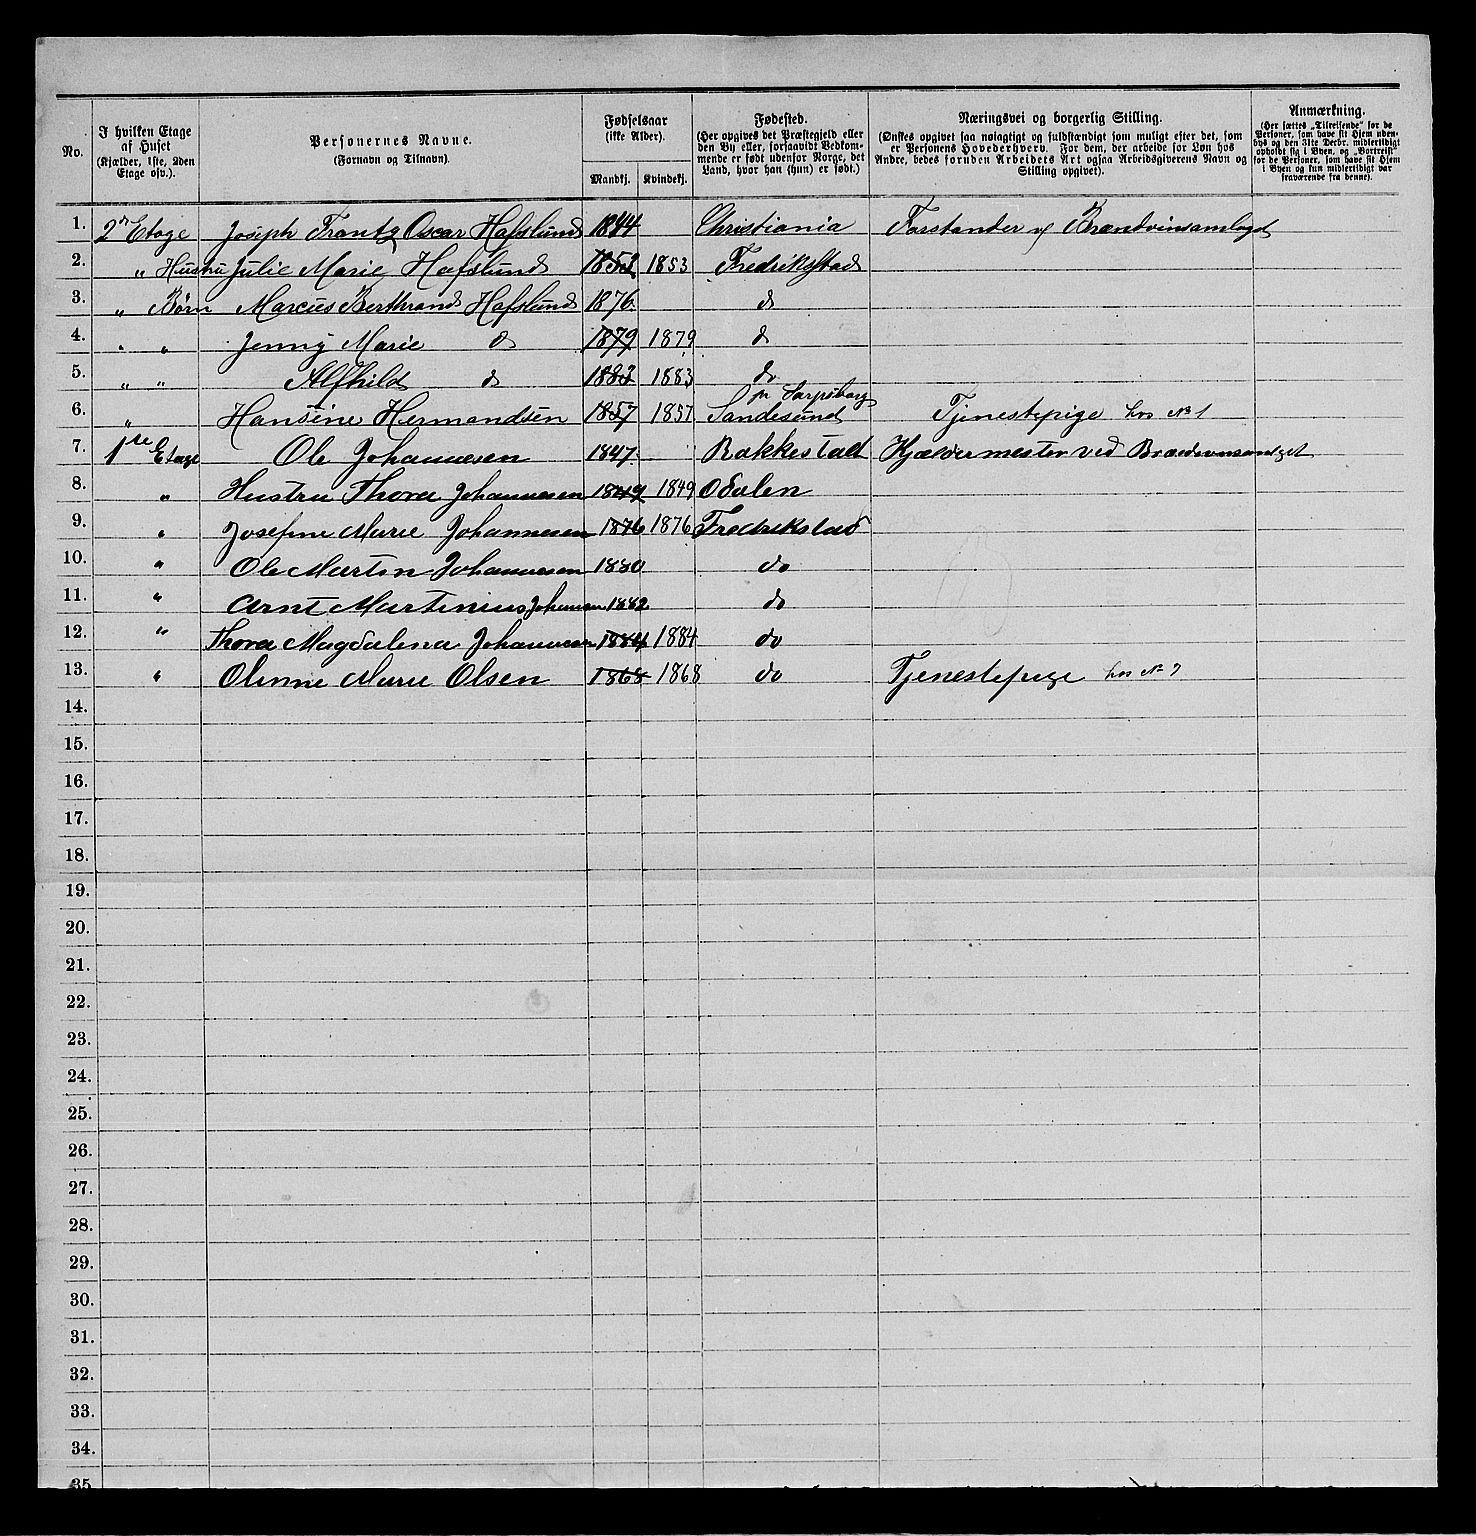 No. | I hvilken Etage af Huset (Kjælder, 1ste, 2den Etage osv.). | Personernes Navne. (Fornavn og Tilnavn). | Fødselsaar (ikke Alder). Mandkj. | Kvindekj. | Fødested. (Her opgives det Præstegjeld eller den By eller, forsaavidt Vedkommende er født udenfor Norge, det Land, hvor han (hun) er født.) | Næringsvei og borgerlig Stilling. (Ønskes opgivet saa nøiagtigt og fuldstændigt som muligt efter det, som er Personens Hovederhverv. For dem, der arbeide for Løn hos Andre, bedes foruden Arbeidets Art ogsaa Arbeidsgiverens Navn og Stilling opgivet). | Anmærkning. (Her sættes "Tilreisende" for de Personer, som have sit Hjem udenbys og den 31te Decbr. midlertidigt opholdt sig i Byen, og "Bortreist" for de Personer, som have sit Hjem i Byen og kun midlertidigt var fraværende fra denne).
1. 2n Etage Joseph Frantz Oscar Hafslund 1844 Christiania Forstander v/ Brændvinsamlaget
2. " Hustru Julie Marie Hafslund 1853 1853 Fredrikstad
3. " Børn Marcus Berthrand Hafslund 1876. do
4. " " Jenny Marie do 1879 1879 do
5. " " Alfhild do 1883 1883 do
6. " Hansine Hermandsen 1857 1857 Sandesund pr Sarpsborg Tjenestepige hos No 1
7. 1ste Etage Ole Johannesen 1847 Rakkestad Kjældermester ved Brændvinsamlaget
8. " Hustru Thora Johannesen 1849 1849 Odalen
9. " Josefine Marie Johannesen 1876 1876 Fredrikstad
10. " Ole Martin Johannesen 1880 do
11. " Arnt Martinius Johannesen 1882 do
12. " Thora Magdalena Johannesen 1884 1884 do
13. " Olinne Marie Olsen 1868 1868 do Tjenestepige hos No 7
14.
15.
16.
17.
18.
19.
20.
21.
22.
23.
24.
25.
26.
27.
28.
29.
30.
31.
32.
33.
34.
35